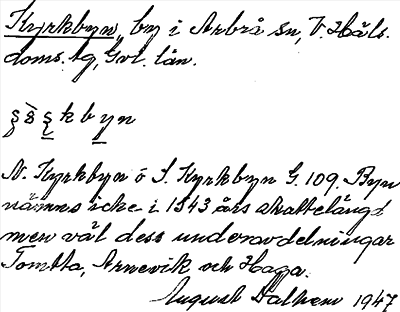 Kyrkbyn, by i Arbrå sn, V. Häls.
doms. tg, Gvl. län.
kbyn
N. Kyrkbyn o S. Kyrkbyn G. 109. Byn
nämns icke i 1543 års skattelängd
men väl dess underavdelningar
Tomtta, Arnevik och Haga.
August Dalhem 1947